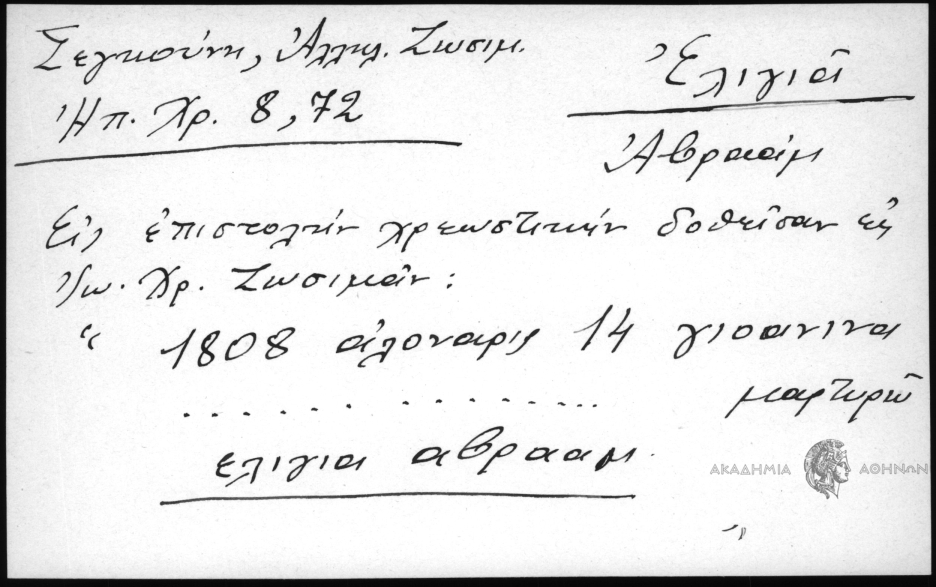 Σεγκούνη, Ἀλληλ. Ζωσιμ.
Ἠπ. Χρ. 8, 72
Ἐλιγιᾶ
Ἀβραάμ
Εἰς ἐπιστολήν χρεωστικήν δοθεῖσαν εἰς
Ἰω. Χρ. Ζωσιμᾶν:
“ 1808 ἁλοναρις 14 γιοανινα
. . . . . . . . . . . . . . . μαρτυρῶ
ελιγια αβρααμ.
ΑΚΑΔΗΜΙΑ ΑΘΗΝΩΝ